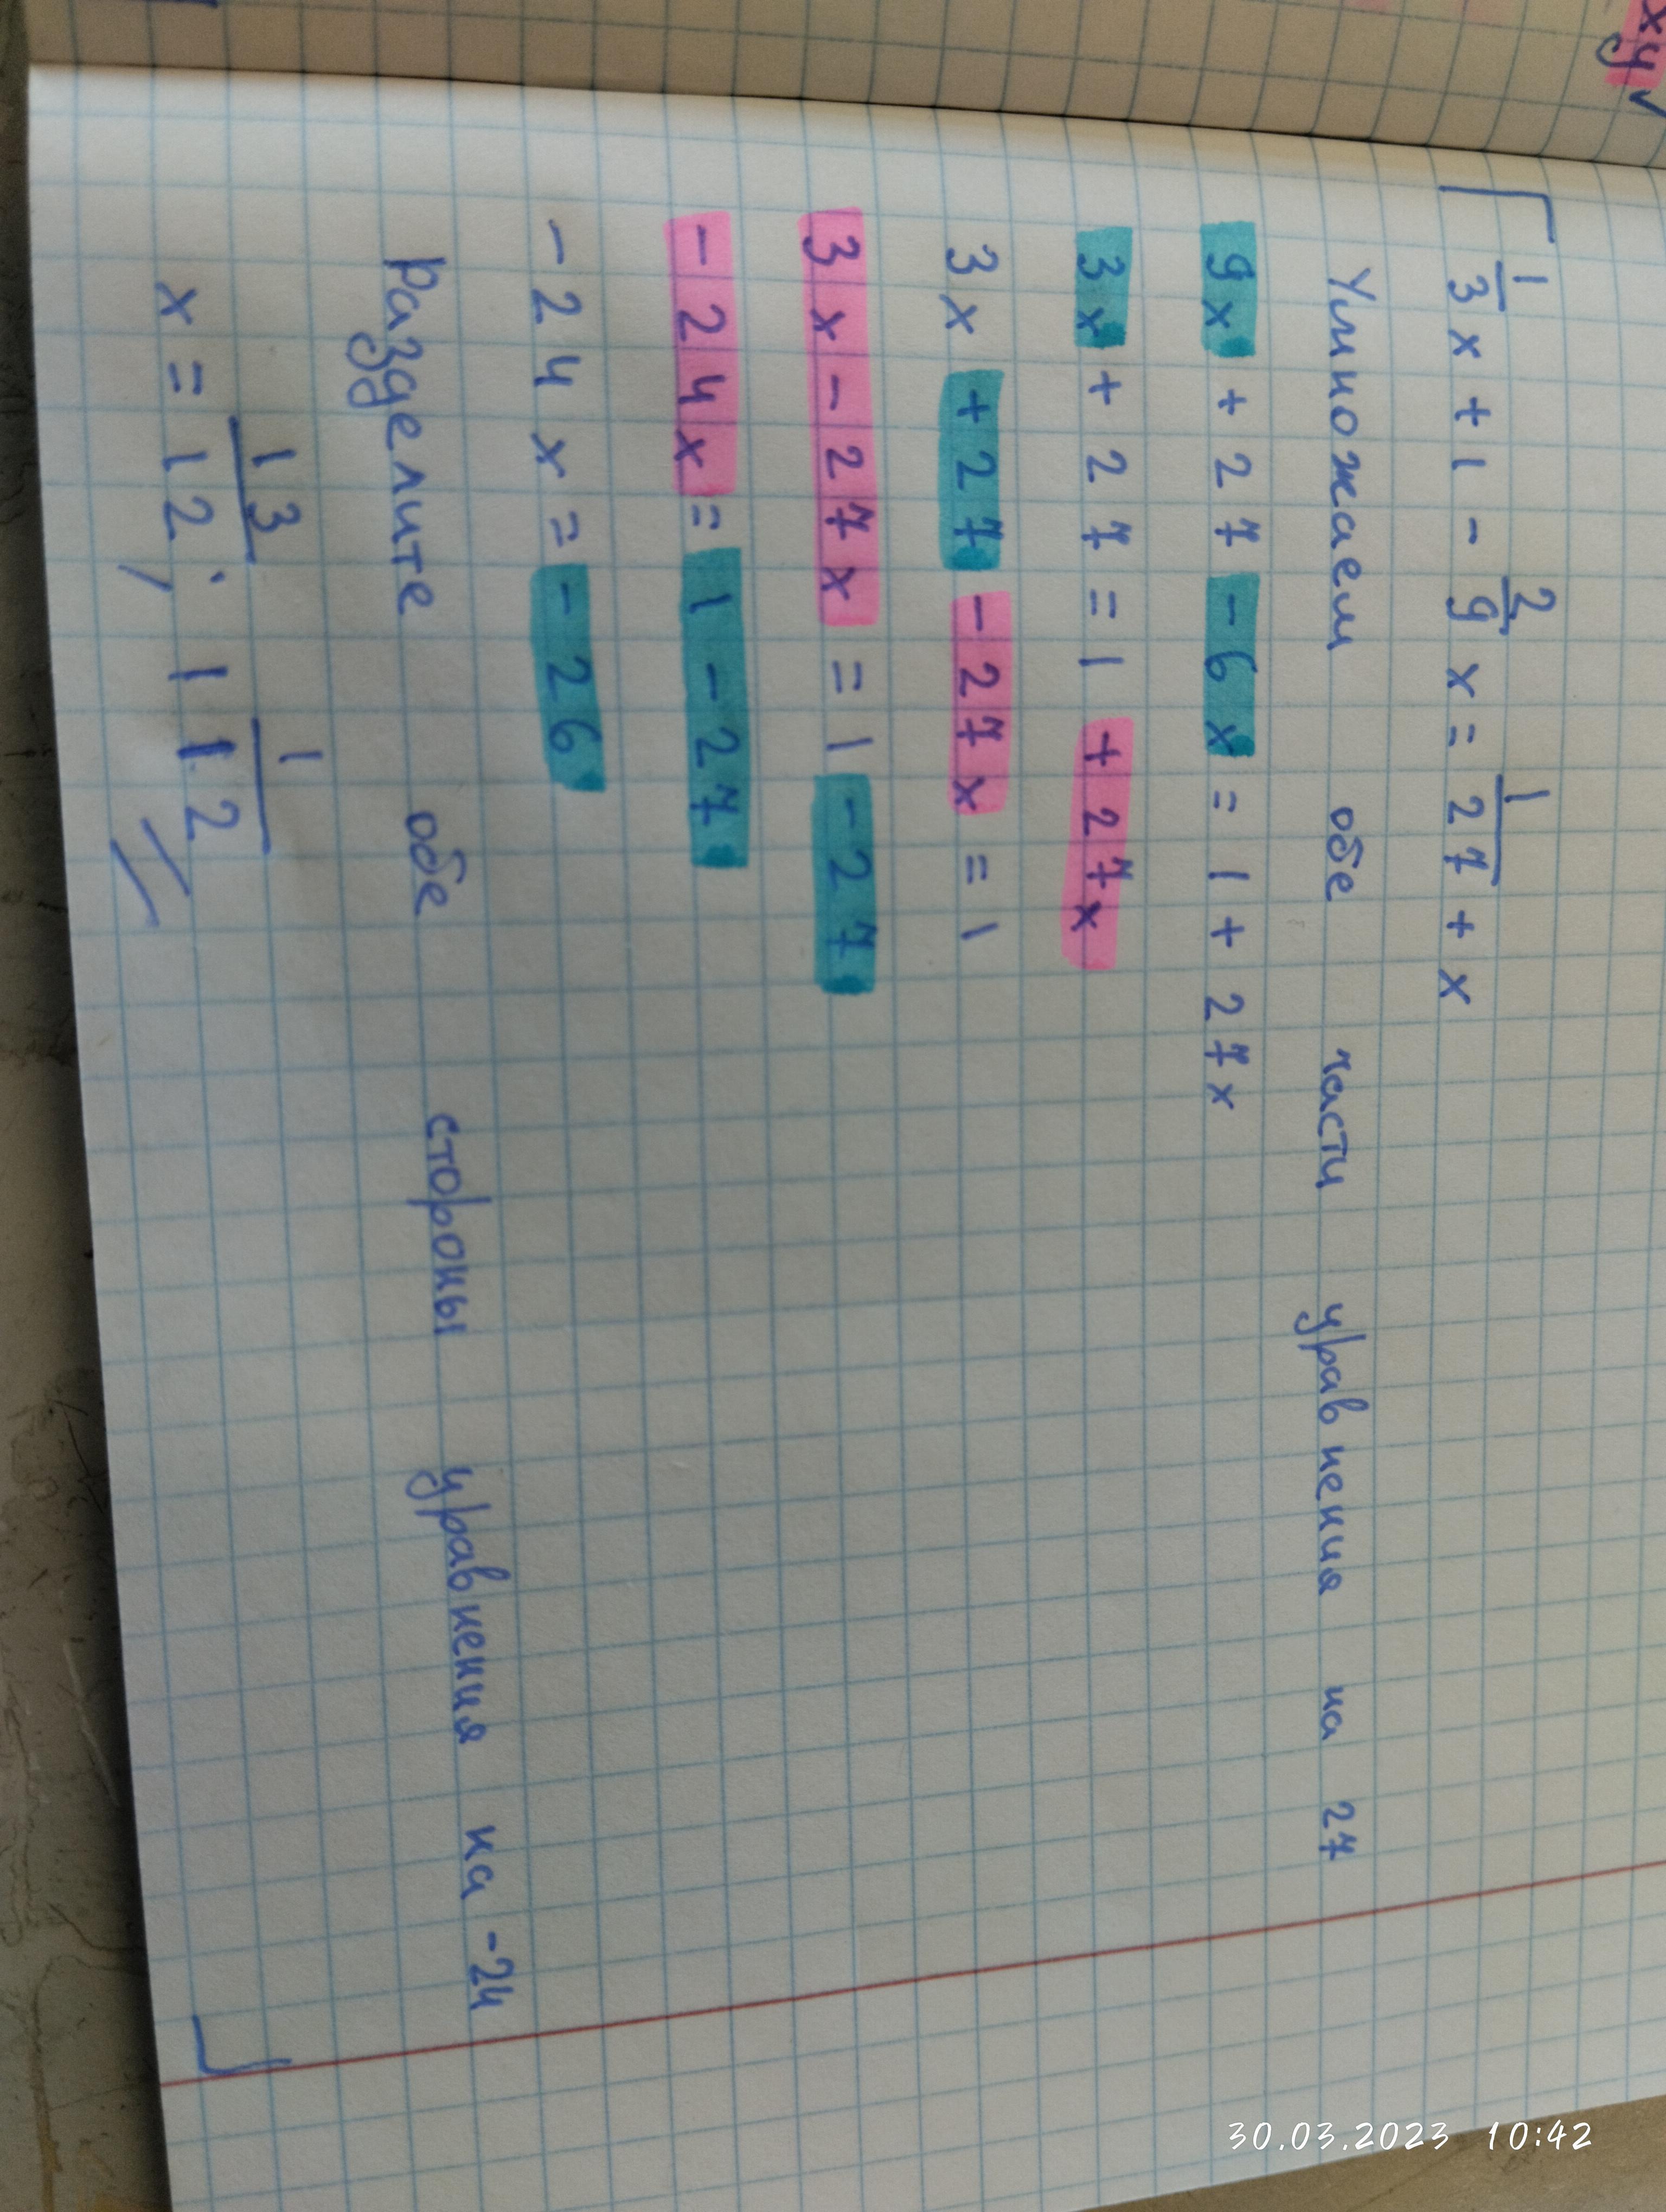 xy ✓
1/3 x + 1 - 2/9 x = 1/27 + x
Умножаем обе части уравнения на 27
9x + 27 - 6x = 1 + 27x
3x + 27 = 1 + 27x
3x + 27 - 27x = 1
3x - 27x = 1 - 27
- 24x = 1 - 27
- 24x = - 26
Разделите обе стороны уравнения на -24
x = 13/12 ; 1 1/12
30.03.2023 10:42